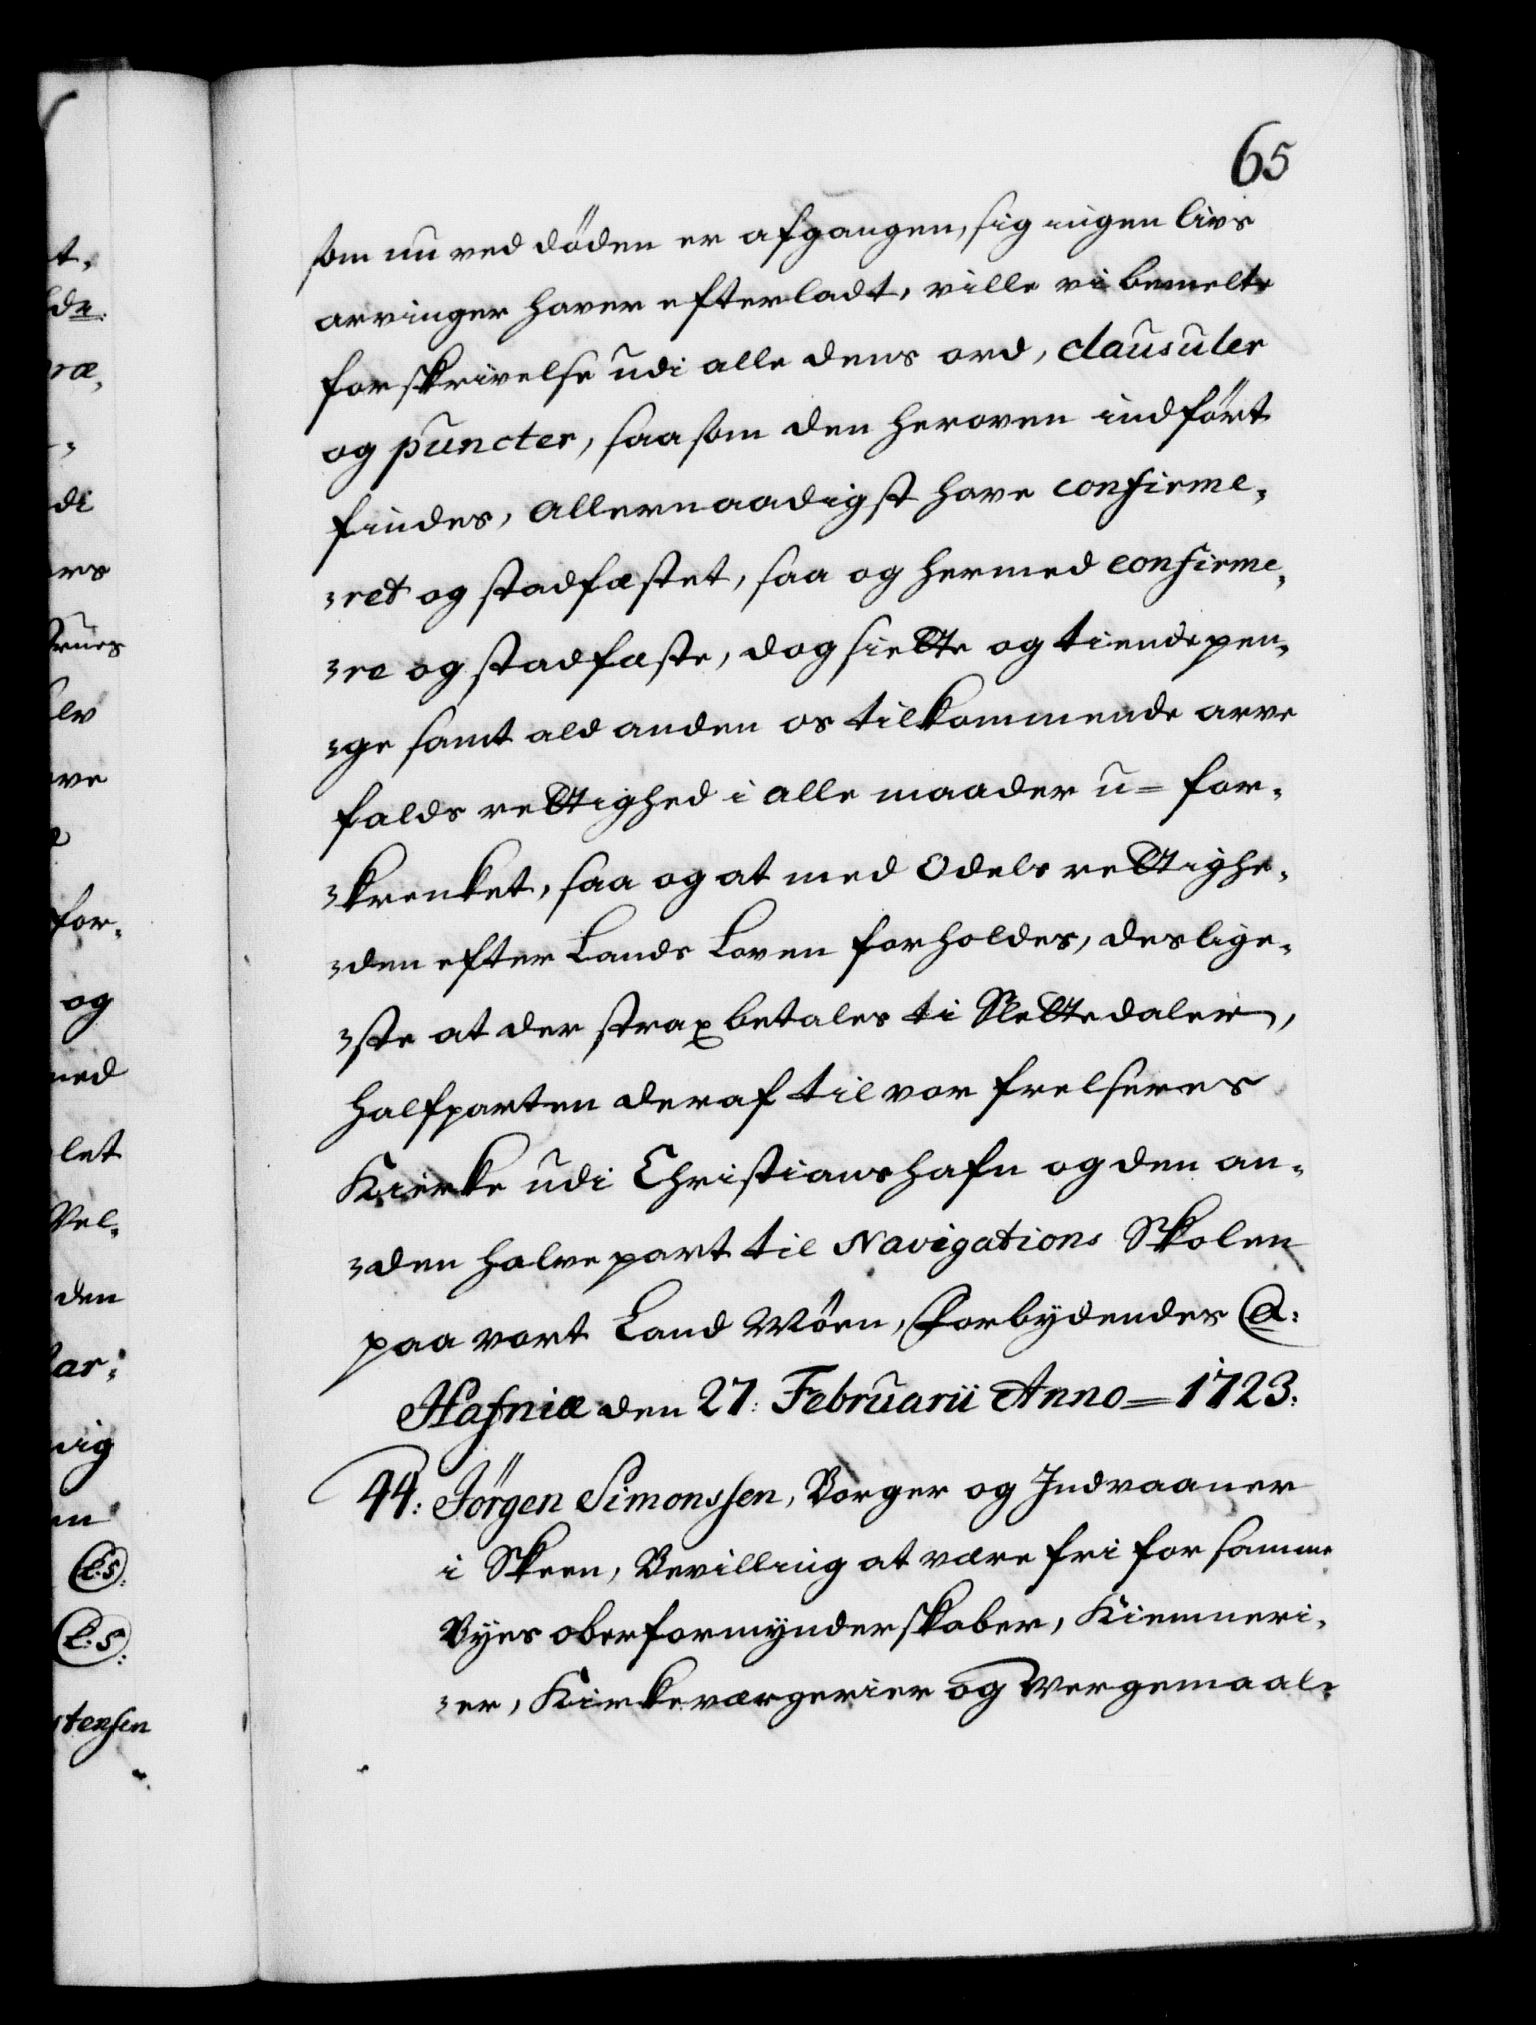 65
som nu ved døden er afgangen, sig ingen livs
arvinger haver efterladt, ville vi bemelte
forskrivelse udi alle dens ord, clausuler
og puncter, saasom den heroven indført
findes, allernaadigst have confirme-
-ret og stadfæstet, saa og hermed confirme-
-re og stadfæste, dog siette og tiende pen-
-ge samt ald anden os tilkommende arve
falds rettighed i alle maader u-for-
-krenket, saa og at med Odels rettighe-
-den efter Lands Loven forholdes, deslige-
-ste at der strax betales ti Slettedaler,
halfparten deraf til vor frelseres
Kierke udi Christianshafn og den an-
-den halve part til Navigations Skolen
paa vort Land Møen, Forbydendes @:
Hafniæ den 27: Februarii Anno=1723:
44: Jørgen Simonssen, Borger og Indvaaner
i Skeen, Bevilling at være fri for samme
Byes oberformynderskaber, Kiemneri-
-er, Kirkeværgerier og Wergemaal-
t,
ræ,
di
ers
ve
for-
og
med
let
Vel-
den
L:S:
L:S:
stensen